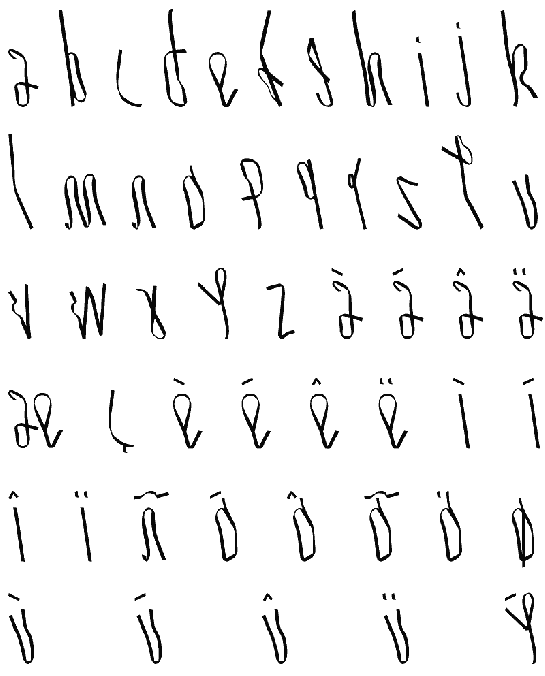 a b c d e f g h i j k
l m n o p q r s t u
v w x y z à á â ä
æ ç è é ê ë ì í
î ï ñ ó ô õ ö ø
ù ú û ü ý